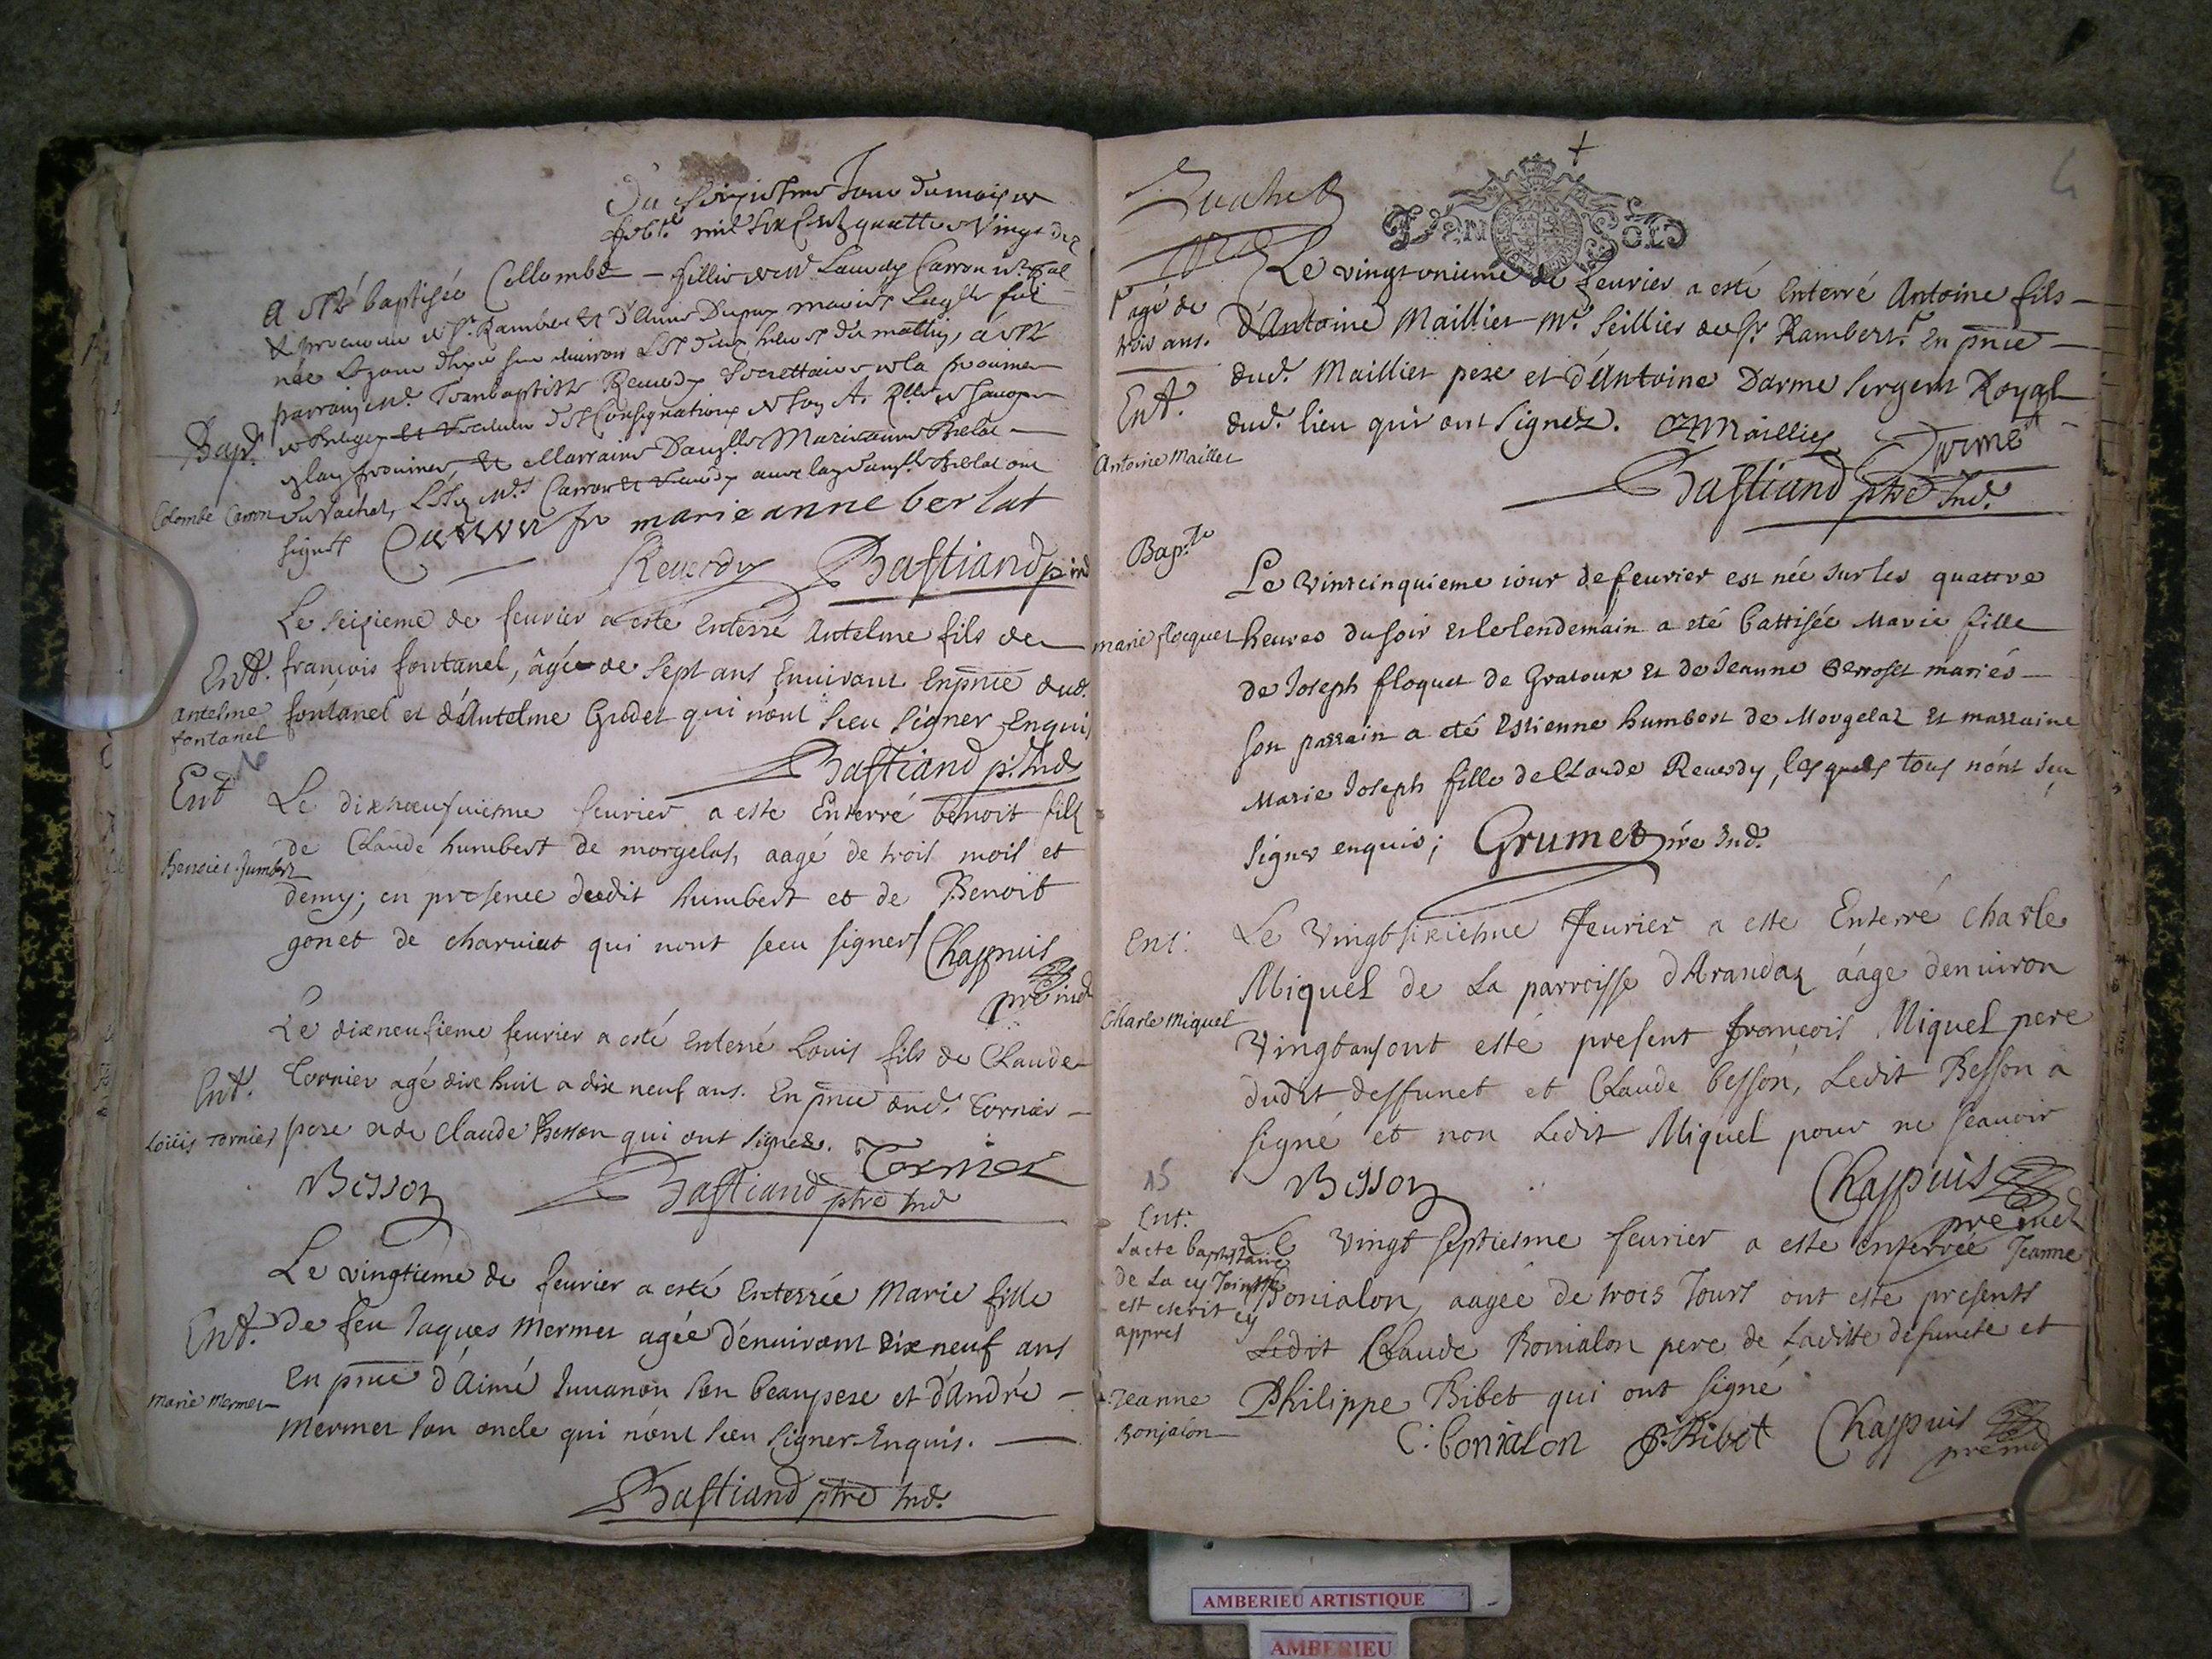 Du seizieme Jour du mois de
febr. mil six cent quattre vingt dix
a esté baptisée Collombe — fillie de Mr Carron
de St. Rambert et d'Anne Dupuy mariés
née le jour du mattin, a esté
parrain Mr. Jeanbaptiste Reverdy Secrettaire de la
de Consignations de A. Rlle de Savoye
et Marraine Marieanne Berlat
Carron et Reverdy avec
signés
marieanne berlat
Reverdy Bastiand p ind
Bapt.
Colombe Carron
Le seizieme de feurier a esté Enterré Antelme fils de
françois fontanel, âgé de sept ans Enuiront En pnce dud.
fontanel et d'Antelme Grudet qui n'ont sceu signer Enquis
Bastiand p. Ind
Ent.
Antelme
fontanel
Ent
Le dixnoeufuiesme feurier a este Enterré benoit fils
de Claude humbert de morgelas, aagé de trois mois et
demy; en presence dudit humbert et de Benoit
gonet de charuieut qui nont sceu signer Chappuis
pre ind
Benoict humbert
Le dixneufieme feurier a esté Enterré Louis fils de Claude
Tornier agé dixhuit a dix neuf ans. En pnce dud. Tornier —
pere et de Claude Besson qui ont signez. Tornier
Besson Bastiand ptre Ind
Ent.
Loüis Tornier
Le vingtieme de feurier a esté Enterrée Marie fille
De feu Jaques Mermet agée d'enuiront dixneuf ans
En pnce d'Aimé Juuanon son beaupere et d'André —
Mermet son oncle qui n'ont sceu signer Enquis. —
Bastiand ptre Ind.
Ent.
Marie Mermet
DEN SOLS
Le vingtunieme de feurier a esté Enterré Antoine fils —
d'Antoine Maillier Mr. Seillier de St Rambert. En pnce —
dud. Maillier pere et d'Antoine Darme Sergent Royal
dud. lieu qui ont signez. Maillier Darme
Bastiand ptre Ind.
agé de
trois ans.
Ent.
Antoine Maillet
Bapte
Le Vintcinquieme iour de feurier est née sur les quattre
heures du soir et le lendemain a eté battisée Marie fille
de Joseph floquet de Gratoux et de Jeanne Perroset mariés —
son parrain a eté Estienne humbert de Morgelaz et marraine
Marie Joseph fille de Claude Reuerdy, lesquels tous n'ont sceu
signer enquis; Grumet pre Ind.
marie flocquet
Ent:
Le Vingtsixiesme feurier a este Enterré charle
Miquel de La parroisse d'Arandaz aâge denuiron
Vingtans ont esté present françois Miquel pere
dudit deffunct et Claude besson, Ledit Besson a
signé et non Ledit Miquel pour ne sçauoir
Besson Chappuis
pre ind
Charle Miquel
15
Ent.
Lacte baptistaire
de La cy Jointe
est escrit cy
appres
Le Vingt septiesme feurier a este enterrée Jeanne
Bonialon, aagée de trois Jours ont este presents
Ledit Claude Bonialon pere de Laditte defuncte et
Philippe Ribet qui ont signé
C. bonialon P. Ribet Chappuis
pre ind
Jeanne
Bonjalon
AMBERIEU ARTISTIQUE
AMBERIEU